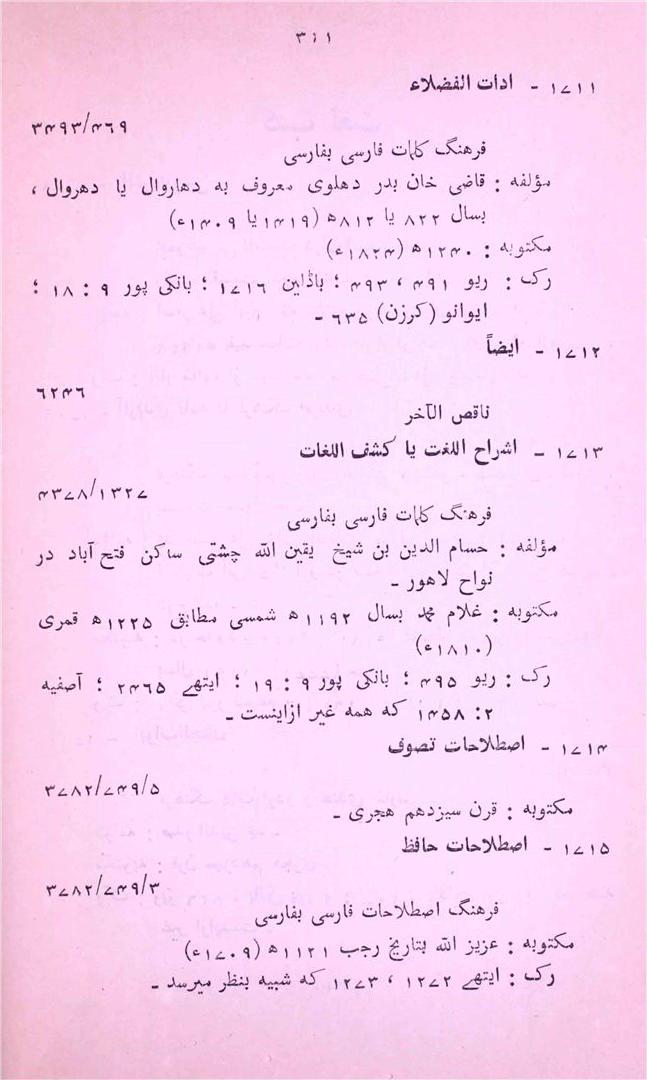 ۳۱۱
۱۷۱۱ - ادات الفضلاء
۳۴۹۳/۴۶۹
فرهنگ کلمات فارسی بفارسی
مؤلفه : قاضی خان بدر دهلوی معروف به دهاروال یا دهروال ،
بسال ۸۲۲ یا ۸۱۲ھ (۱۴۱۹ یا ۱۴۰۹ء)
مکتوبه : ۱۲۴۰ھ (۱۸۲۴ء)
رک : ریو ۴۹۱ ، ۴۹۳ ؛ باڈلین ۱۷۱۶ ؛ بانکی پور ۹ : ۱۸ ؛
ایوانو (کرزن) ۶۳۵ -
۱۷۱۲ - ایضاً
۶۲۴۶
ناقص الآخر
۱۷۱۳ - اشراح اللغت یا کشف اللغات
۴۳۷۸/۱۳۲۷
فرهنگ کلمات فارسی بفارسی
مؤلفه : حسام الدین بن شیخ یقین الله چشتی ساکن فتح آباد در
نواح لاهور -
مکتوبه : غلام محمد بسال ۱۱۹۲ھ شمسی مطابق ۱۲۲۵ھ قمری
(۱۸۱۰ء)
رک : ریو ۴۹۵ ؛ بانکی پور ۹ : ۱۹ ؛ ایتھے ۲۴۶۵ ؛ آصفیه
۲ : ۱۴۵۸ که همه غیر ازاینست -
۱۷۱۴ - اصطلاحات تصوف
۳۷۸۲/۷۴۹/۵
مکتوبه : قرن سیزدهم هجری -
۱۷۱۵ - اصطلاحات حافظ
۳۷۸۲/۷۴۹/۳
فرهنگ اصطلاحات فارسی بفارسی
مکتوبه : عزیز الله بتاریخ رجب ۱۱۲۱ھ (۱۷۰۹ء)
رک : ایتھے ۱۲۷۲ ، ۱۲۷۳ که شبیه بنظر میرسد -